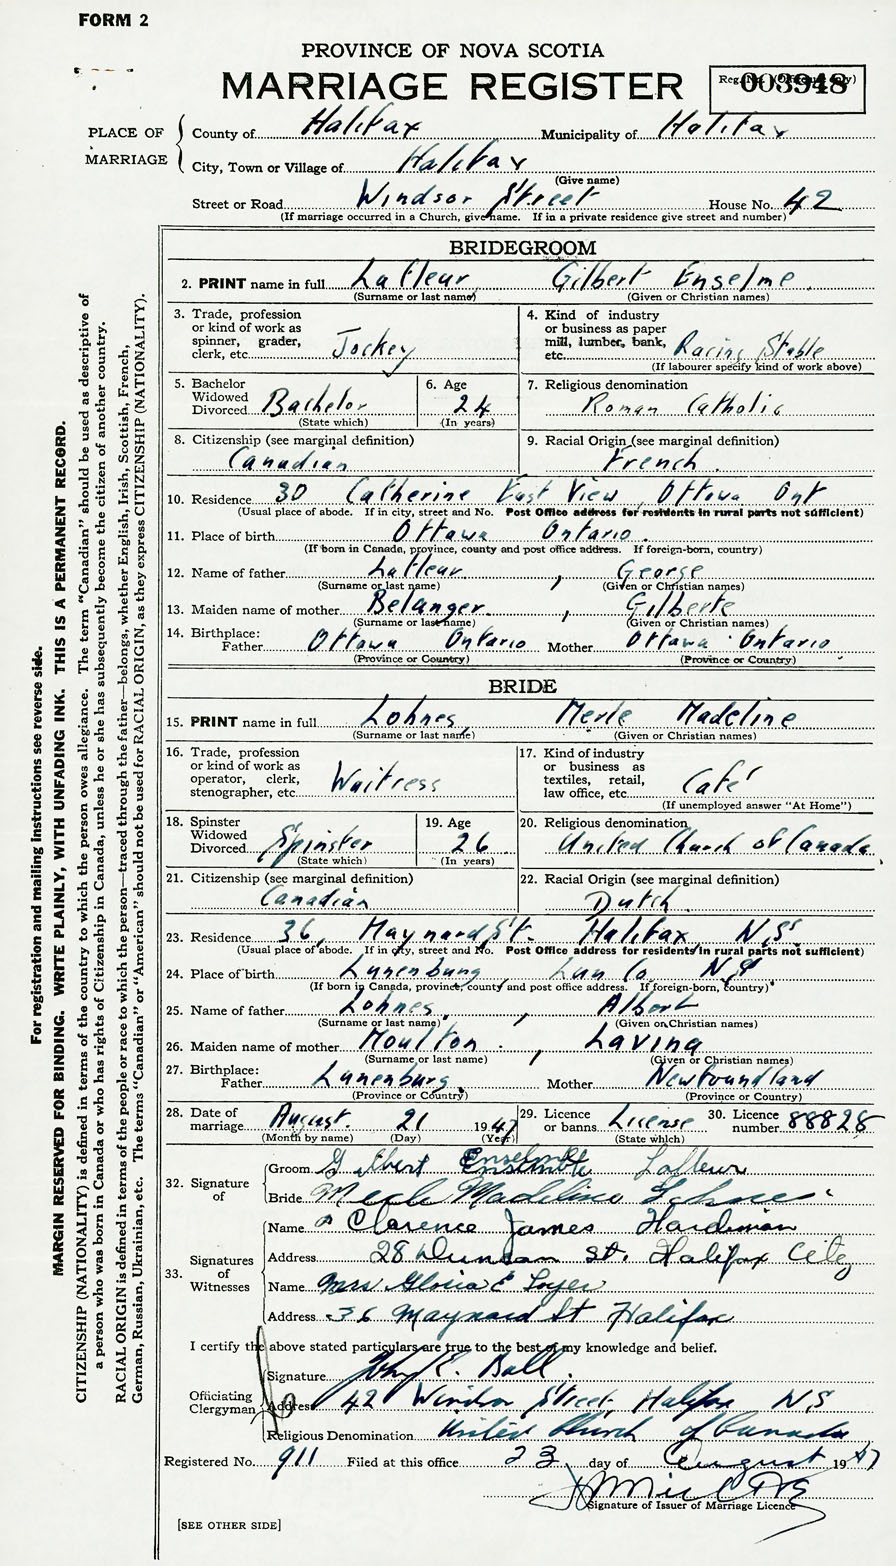 FORM 2
PROVINCE OF NOVA SCOTIA
MARRIAGE REGISTER
Reg. No. (Office use only)
003948
PLACE OF MARRIAGE
County of Halifax Municipality of Halifax
City, Town or Village of Halifax
(Give name)
Street or Road Windsor Street House No. 42
(If marriage occurred in a Church, give name. If in a private residence give street and number)
BRIDEGROOM
2. PRINT name in full Lafleur, Gilbert Enselme
(Surname or last name) (Given or Christian names)
3. Trade, profession or kind of work as spinner, grader, clerk, etc. Jockey
4. Kind of industry or business as paper mill, lumber, bank, etc. Racing Stable
(If labourer specify kind of work above)
5. Bachelor Widowed Divorced Bachelor
(State which)
6. Age 24
(In years)
7. Religious denomination
Roman Catholic
8. Citizenship (see marginal definition)
Canadian
9. Racial Origin (see marginal definition)
French.
10. Residence 30 Catherine East View, Ottawa Ont
(Usual place of abode. If in city, street and No. Post Office address for residents in rural parts not sufficient)
11. Place of birth Ottawa Ontario.
(If born in Canada, province, county and post office address. If foreign-born, country)
12. Name of father Lafleur, George
(Surname or last name) (Given or Christian names)
13. Maiden name of mother Belanger, Gilberte
(Surname or last name) (Given or Christian names)
14. Birthplace:
Father Ottawa Ontario Mother Ottawa Ontario
(Province or Country) (Province or Country)
BRIDE
15. PRINT name in full Lohnes, Merle Madeline
(Surname or last name) (Given or Christian names)
16. Trade, profession or kind of work as operator, clerk, stenographer, etc. Waitress
17. Kind of industry or business as textiles, retail, law office, etc. Café
(If unemployed answer "At Home")
18. Spinster Widowed Divorced Spinster
(State which)
19. Age 26
(In years)
20. Religious denomination
United Church of Canada.
21. Citizenship (see marginal definition)
Canadian
22. Racial Origin (see marginal definition)
Dutch.
23. Residence 36, Maynard St. Halifax N.S.
(Usual place of abode. If in city, street and No. Post Office address for residents in rural parts not sufficient)
24. Place of birth Lunenburg, Lun Co, N.S
(If born in Canada, province, county and post office address. If foreign-born, country)
25. Name of father Lohnes, Albert
(Surname or last name) (Given or Christian names)
26. Maiden name of mother Moulton, Lavina
(Surname or last name) (Given or Christian names)
27. Birthplace:
Father Lunenburg. Mother Newfoundland
(Province or Country) (Province or Country)
28. Date of marriage August. 21 1947
(Month by name) (Day) (Year)
29. Licence or banns License
(State which)
30. Licence number 88828
32. Signature of
Groom Gilbert Enselme Lafleur
Bride Merle Madeline Lohnes
33. Signatures of Witnesses
Name Clarence James Hardiman
Address 28 Duncan St. Halifax City
Name Mrs Gloria E
Address 36 Maynard St Halifax
I certify the above stated particulars are true to the best of my knowledge and belief.
Officiating Clergyman
Signature John E. Ball.
Address 42 Windsor Street, Halifax N.S
Religious Denomination United Church of Canada
Registered No. 911 Filed at this office 23 day of August 1947
Signature of Issuer of Marriage Licence
[SEE OTHER SIDE]
For registration and mailing instructions see reverse side.
MARGIN RESERVED FOR BINDING. WRITE PLAINLY, WITH UNFADING INK. THIS IS A PERMANENT RECORD.
CITIZENSHIP (NATIONALITY) is defined in terms of the country to which the person owes allegiance. The term "Canadian" should be used as descriptive of
a person who was born in Canada or who has rights of Citizenship in Canada, unless he or she has subsequently become the citizen of another country.
RACIAL ORIGIN is defined in terms of the people or race to which the person—traced through the father—belongs, whether English, Irish, Scottish, French,
German, Russian, Ukrainian, etc. The terms "Canadian" or "American" should not be used for RACIAL ORIGIN, as they express CITIZENSHIP (NATIONALITY).